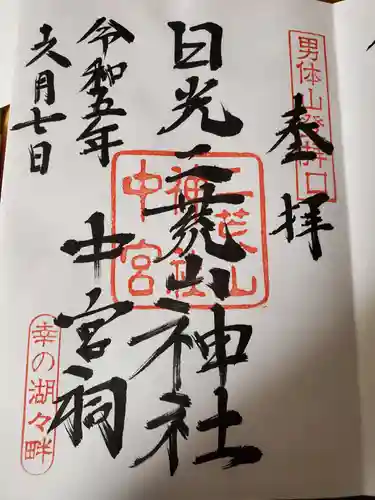 男体山登拝口
奉拝
日光二荒山神社
中宮祠
二荒山
神社
中宮
令和五年
六月七日
幸の湖々畔